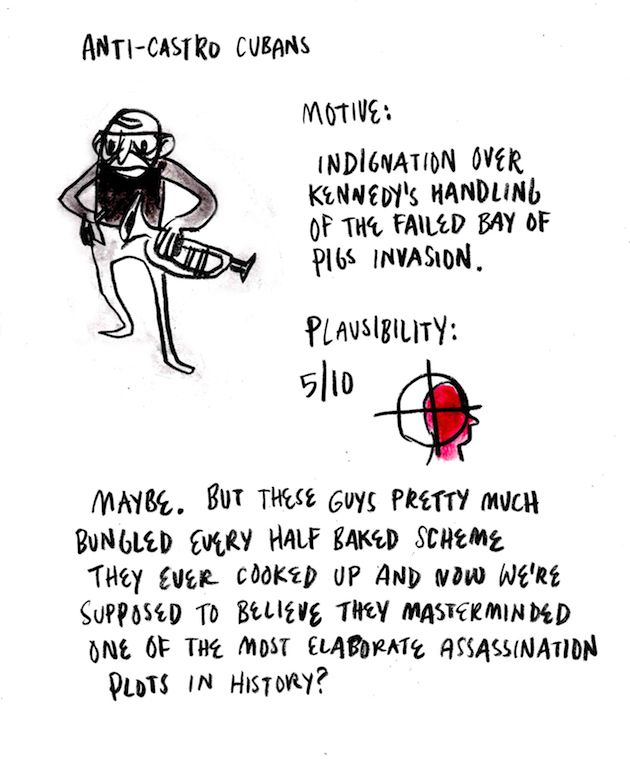 ANTI-CASTRO CUBANS
MOTIVE:
INDIGNATION OVER
KENNEDY'S HANDLING
OF THE FAILED BAY OF
PIGS INVASION.
PLAUSIBILITY:
5/10
MAYBE. BUT THESE GUYS PRETTY MUCH
BUNGLED EVERY HALF BAKED SCHEME
THEY EVER COOKED UP AND NOW WE'RE
SUPPOSED TO BELIEVE THEY MASTERMINDED
ONE OF THE MOST ELABORATE ASSASSINATION
PLOTS IN HISTORY?